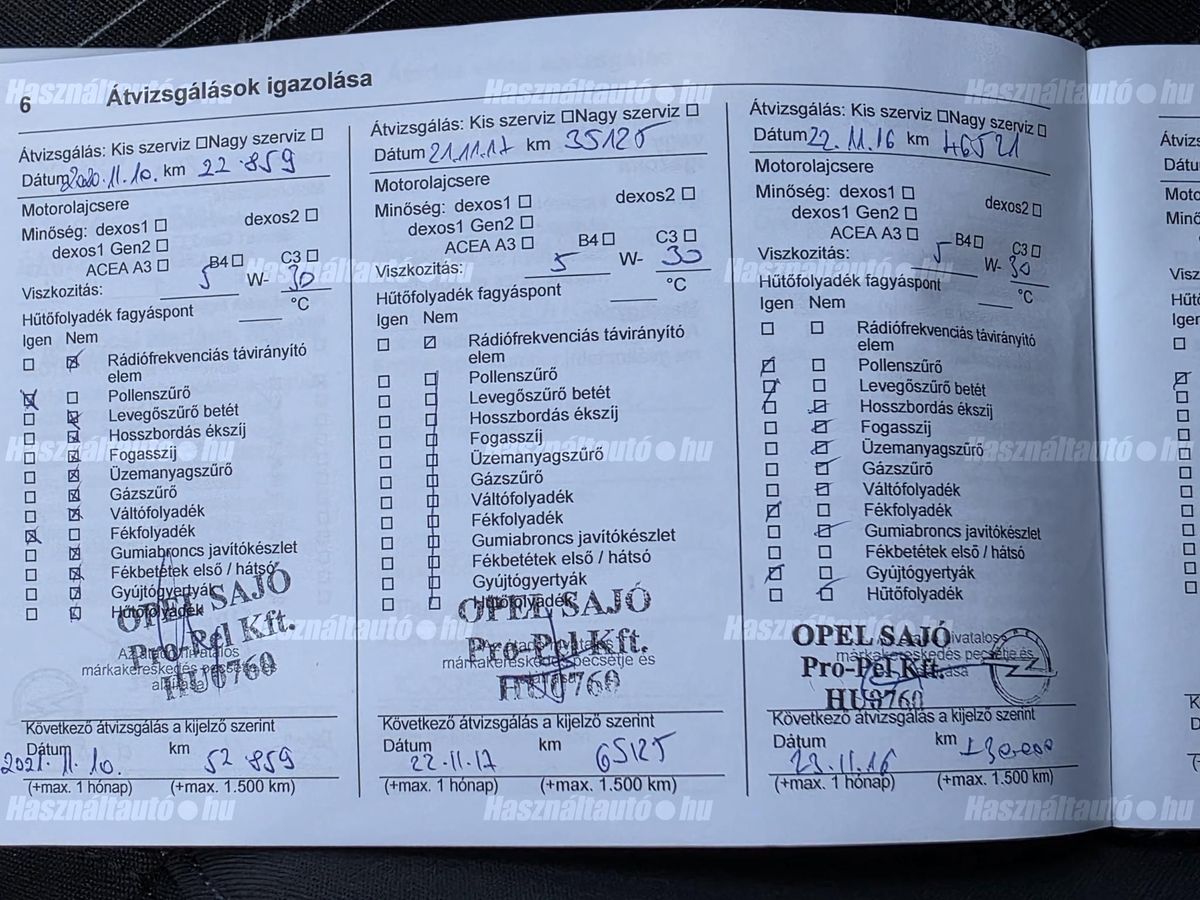 6 Átvizsgálások igazolása
Átvizsgálás: Kis szerviz ☐ Nagy szerviz ☐
Dátum 2020.11.10. km 22.859
Motorolajcsere
Minőség: dexos1 ☐ dexos2 ☐
dexos1 Gen2 ☐
ACEA A3 ☐ B4 ☐ C3 ☐
Viszkozitás: 5 W- 30
Hűtőfolyadék fagyáspont ____ °C
Igen Nem
☐ ☒ Rádiófrekvenciás távirányító
elem
☒ ☐ Pollenszűrő
☐ ☒ Levegőszűrő betét
☐ ☒ Hosszbordás ékszíj
☐ ☒ Fogasszíj
☐ ☒ Üzemanyagszűrő
☐ ☒ Gázszűrő
☐ ☒ Váltófolyadék
☒ ☐ Fékfolyadék
☐ ☒ Gumiabroncs javítókészlet
☐ ☒ Fékbetétek első / hátsó
☐ ☒ Gyújtógyertyák
☐ ☒ Hűtőfolyadék
OPEL SAJÓ
Pro-Pel Kft.
HU0760
márkakereskedés pecsétje és
aláírása
Következő átvizsgálás a kijelző szerint
Dátum km
2021.11.10. 52 859
(+max. 1 hónap) (+max. 1.500 km)
Átvizsgálás: Kis szerviz ☐ Nagy szerviz ☐
Dátum 21.11.17 km 35125
Motorolajcsere
Minőség: dexos1 ☐ dexos2 ☐
dexos1 Gen2 ☐
ACEA A3 ☐ B4 ☐ C3 ☐
Viszkozitás: 5 W- 30
Hűtőfolyadék fagyáspont ____ °C
Igen Nem
☐ ☑ Rádiófrekvenciás távirányító
elem
☐ ☐ Pollenszűrő
☐ ☐ Levegőszűrő betét
☐ ☐ Hosszbordás ékszíj
☐ ☐ Fogasszíj
☐ ☐ Üzemanyagszűrő
☐ ☐ Gázszűrő
☐ ☐ Váltófolyadék
☐ ☐ Fékfolyadék
☐ ☐ Gumiabroncs javítókészlet
☐ ☐ Fékbetétek első / hátsó
☐ ☐ Gyújtógyertyák
☐ ☐ Hűtőfolyadék
OPEL SAJÓ
Pro-Pel Kft.
HU0760
márkakereskedés pecsétje és
Következő átvizsgálás a kijelző szerint
Dátum km
22.11.17 65125
(+max. 1 hónap) (+max. 1.500 km)
Átvizsgálás: Kis szerviz ☐ Nagy szerviz ☐
Dátum 22.11.16 km 46521
Motorolajcsere
Minőség: dexos1 ☐ dexos2 ☐
dexos1 Gen2 ☐
ACEA A3 ☐ B4 ☐ C3 ☐
Viszkozitás: 5 W- 30
Hűtőfolyadék fagyáspont ____ °C
Igen Nem
☐ ☐ Rádiófrekvenciás távirányító
elem
☑ ☐ Pollenszűrő
☑ ☐ Levegőszűrő betét
☐ ☑ Hosszbordás ékszíj
☐ ☑ Fogasszíj
☐ ☑ Üzemanyagszűrő
☐ ☑ Gázszűrő
☐ ☑ Váltófolyadék
☑ ☐ Fékfolyadék
☐ ☑ Gumiabroncs javítókészlet
☐ ☐ Fékbetétek első / hátsó
☑ ☐ Gyújtógyertyák
☐ ☑ Hűtőfolyadék
OPEL SAJÓ
Pro-Pel Kft.
HU0760
hivatalos
márkakereskedés pecsétje és
OPEL
Következő átvizsgálás a kijelző szerint
Dátum km
23.11.16
(+max. 1 hónap) (+max. 1.500 km)
Használtautó.hu